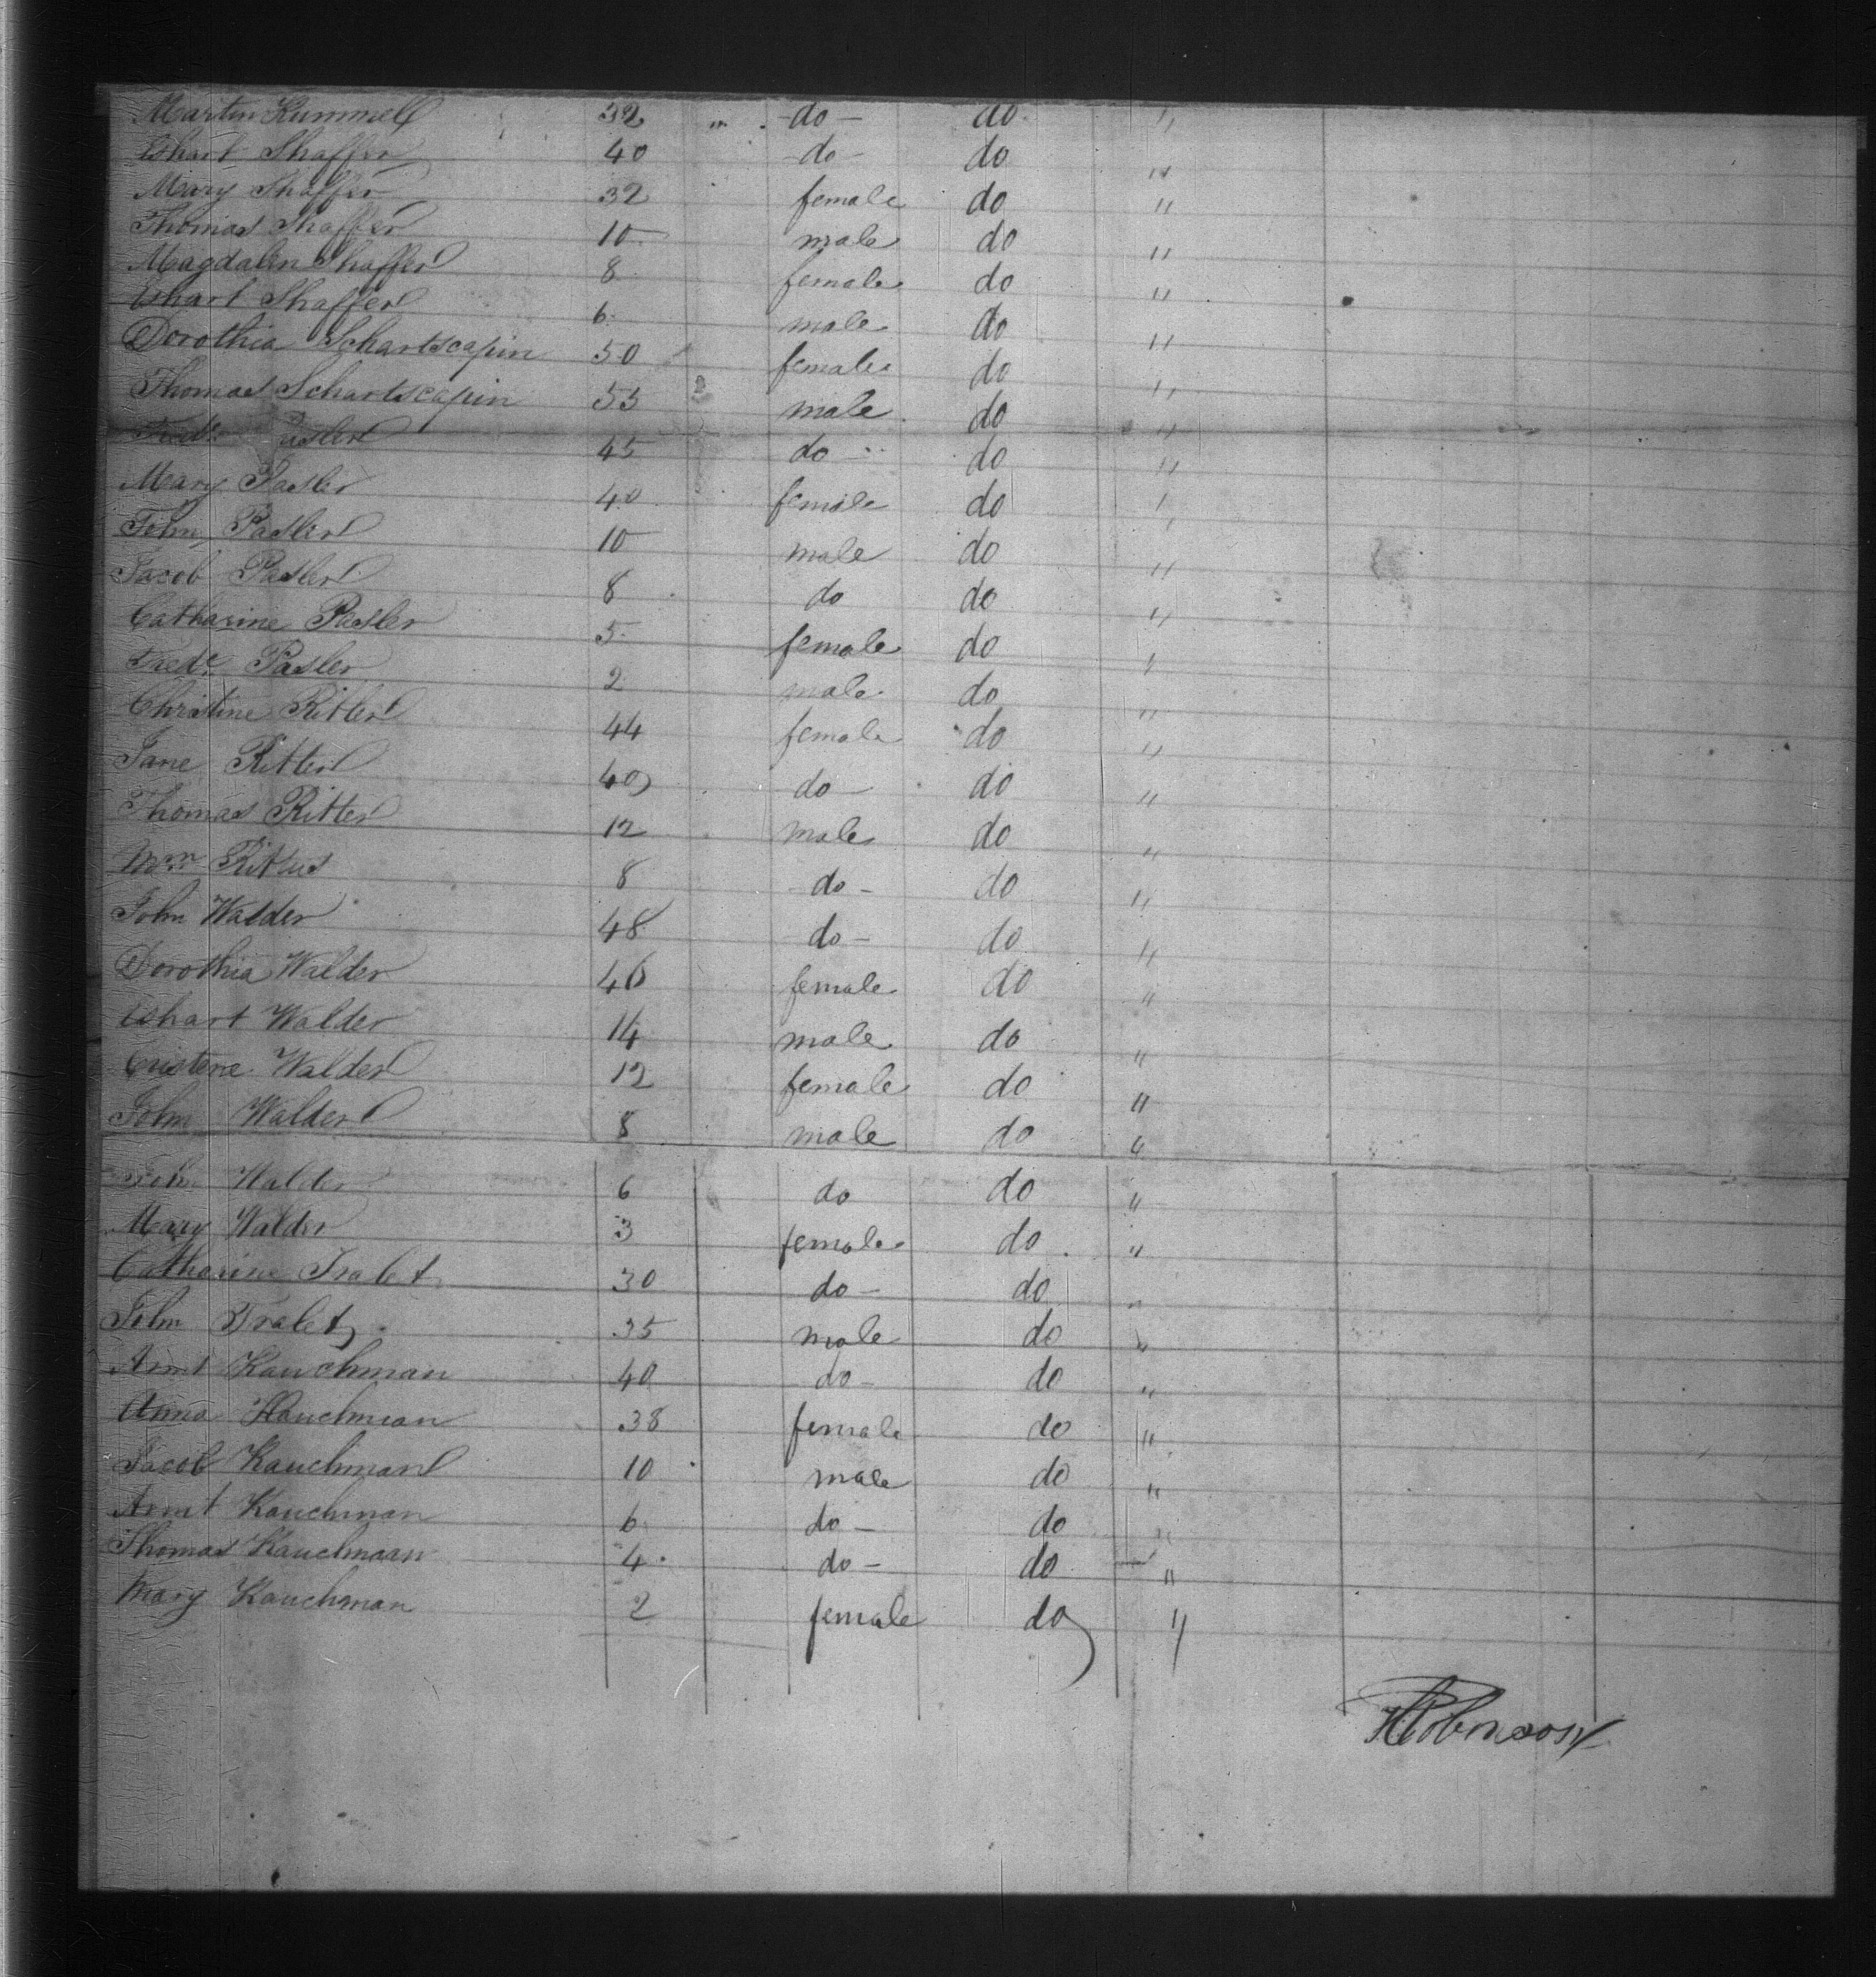 Martin Kummell 32 " do - do "
Ehart Shaffer 40 - do - do "
Mary Shaffer 32 female do "
Thomas Shaffer 10 male do "
Magdalen Shaffer 8 female do "
Ehart Shaffer 6 male do "
Dorothia Schartscapin 50 female do "
Thomas Schartscapin 55 male do "
Fredk Pasler 45 do do "
Mary Pasler 40 female do "
John Pasler 10 male do "
Jacob Pasler 8 do do "
Catharine Pasler 5 female do "
Fredk Pasler 2 male do "
Christine Ritter 44 female do "
Jane Ritter 40 do - do "
Thomas Ritter 12 male do "
Wm Ritter 8 - do - do "
John Walder 48 do - do "
Dorothia Walder 46 female do "
Ehart Walder 14 male do "
Cristene Walder 12 female do "
John Walder 8 male do "
Walder 6 do do "
Mary Walder 3 female do "
Catharine 30 do - do "
John 35 male do "
Kauchman 40 do - do "
Anna Kauchman 38 female do "
Jacob Kauchman 10 male do "
Kauchman 6 do - do "
Thomas Kauchman 4 do - do "
Mary Kauchman 2 female do "
Robinson